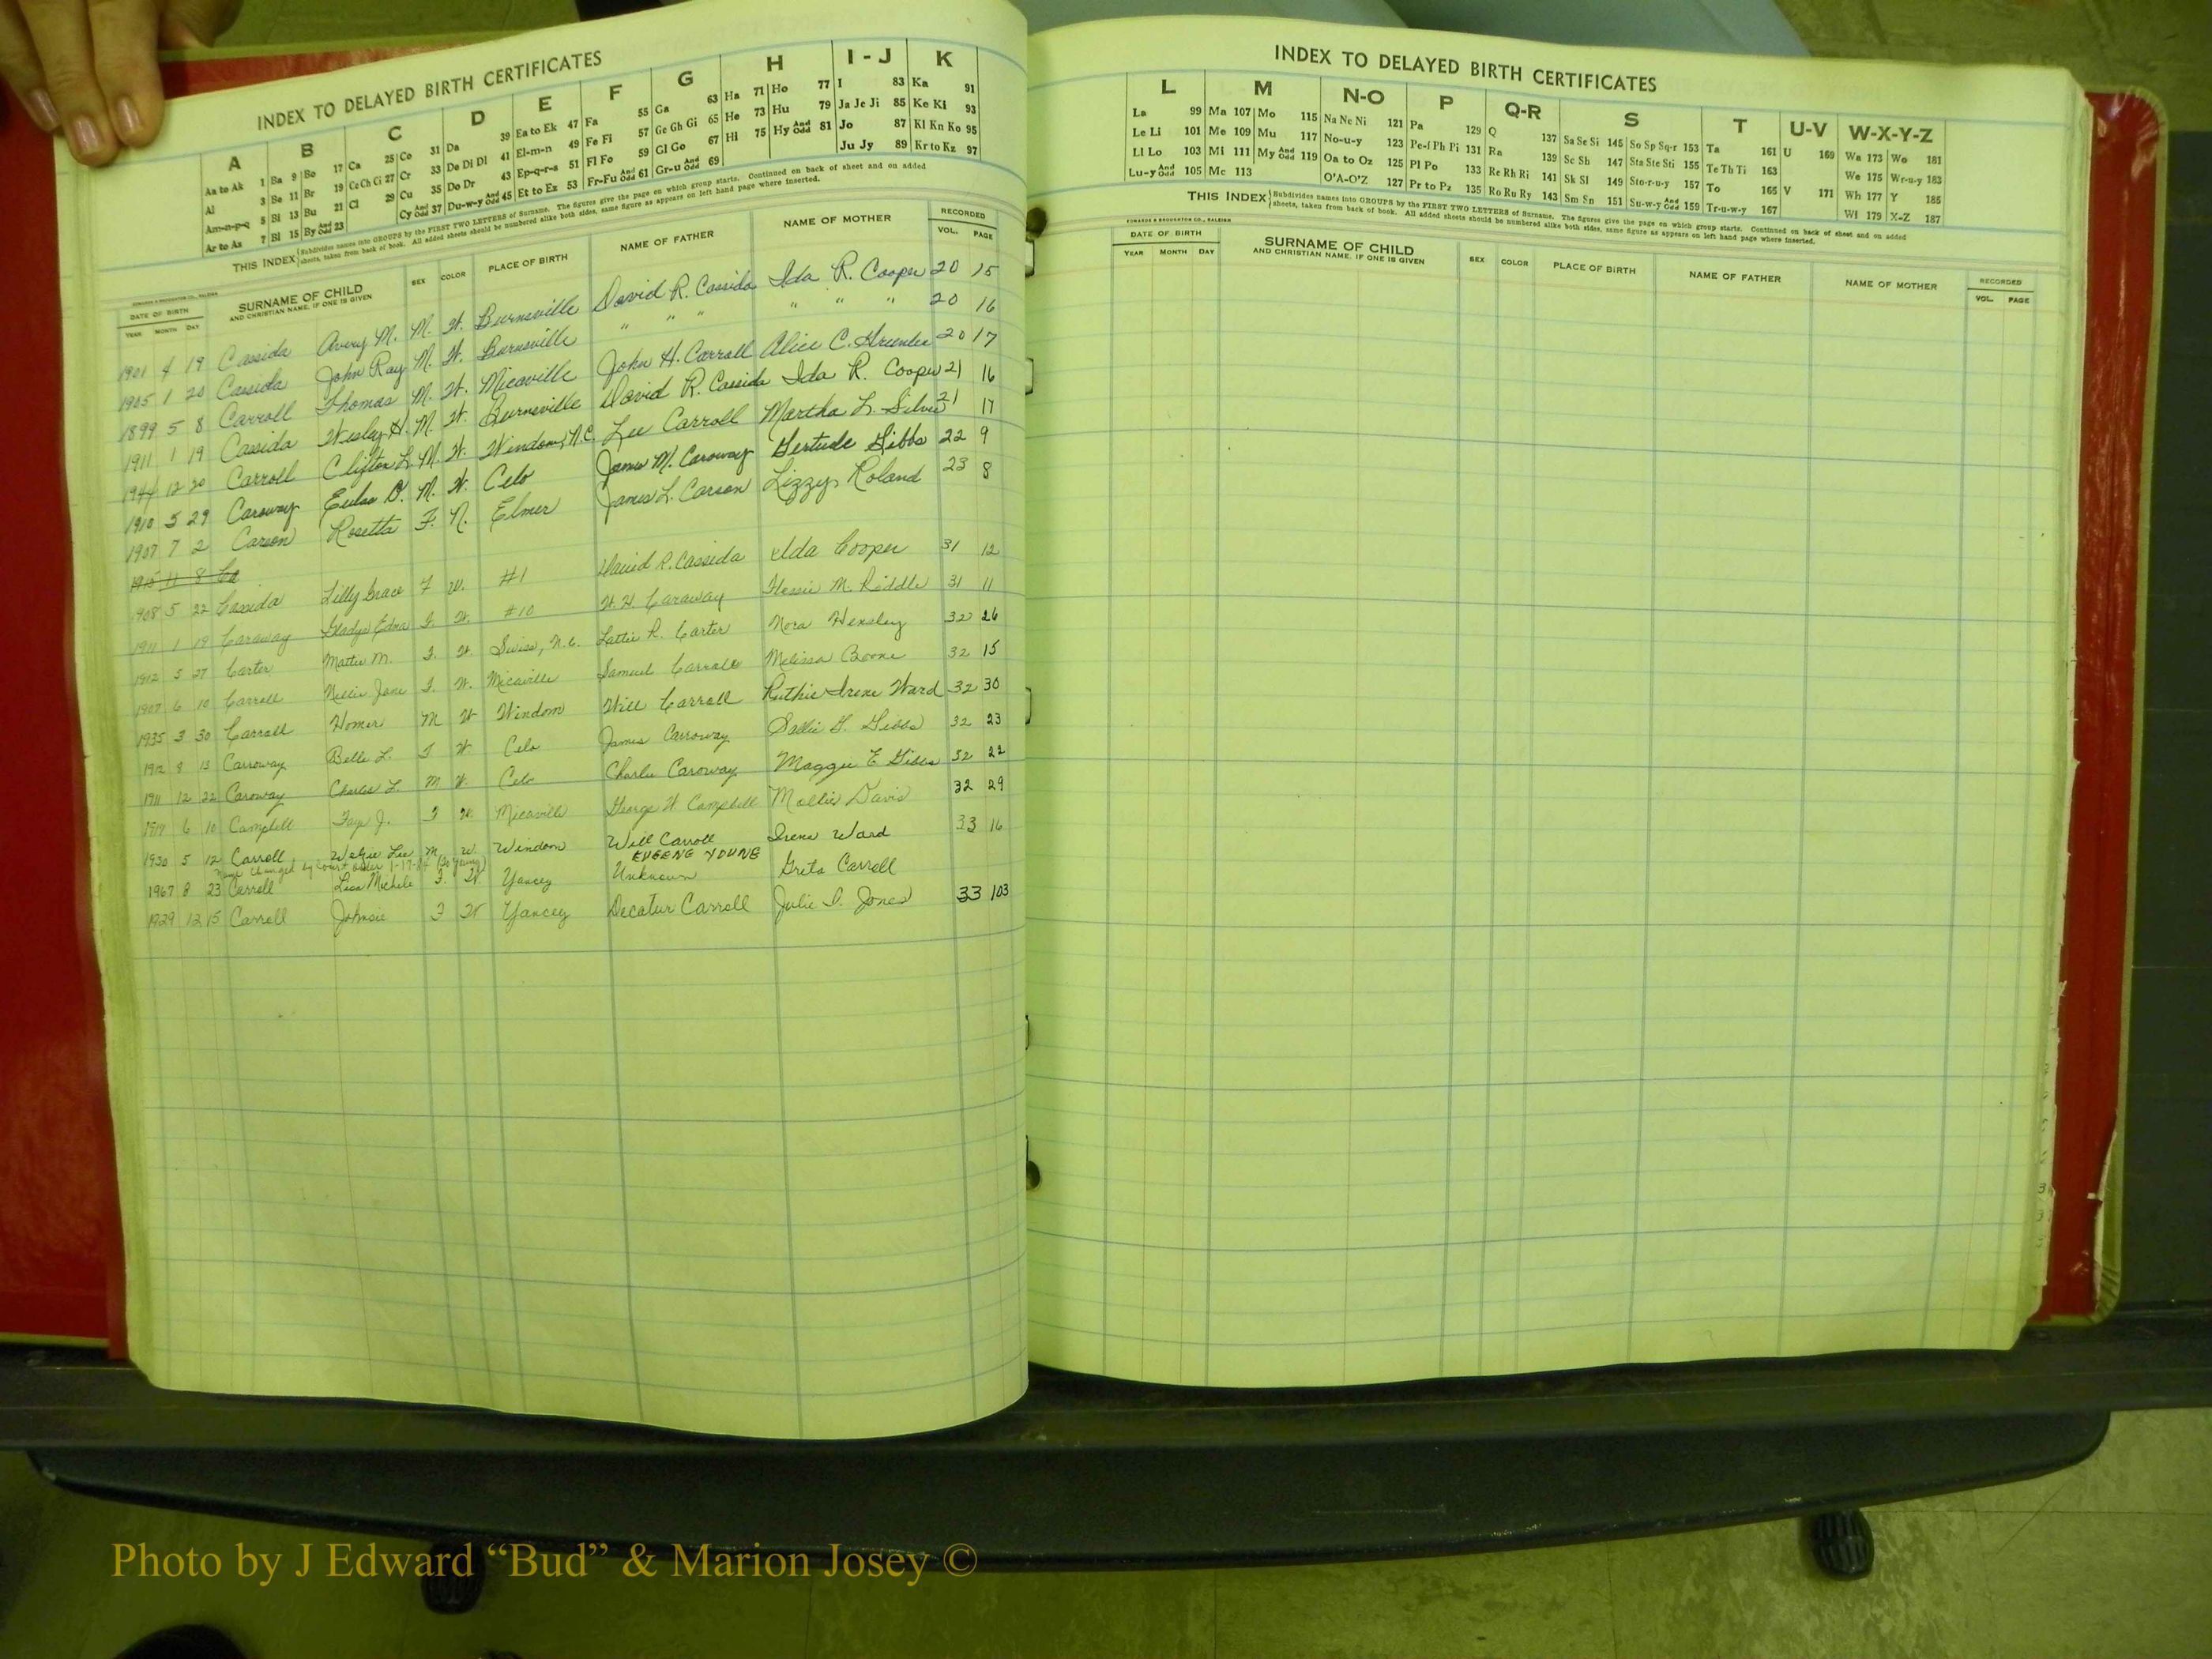 INDEX TO DELAYED BIRTH CERTIFICATES
A B C D E F G H I - J K
Aa to Ak 1 Ba 9 Bo 17 Ca 25 Co 31 Da 39 Ea to Ek 47 Fa 55 Ga 63 Ha 71 Ho 77 I 83 Ka 91
Al 3 Be 11 Br 19 Ce Ch Ci 27 Cr 33 De Di Dl 41 El-m-n 49 Fe Fi 57 Ge Gh Gi 65 He 73 Hu 79 Ja Je Ji 85 Ke Ki 93
Am-n-p-q 5 Bi 13 Bu 21 Cl 29 Cu 35 Do Dr 43 Ep-q-r-s 51 Fl Fo 59 Gl Go 67 Hi 75 Hy And Odd 81 Jo 87 Kl Kn Ko 95
Ar to Az 7 Bl 15 By And Odd 23 Cy And Odd 37 Du-w-y And Odd 45 Et to Ez 53 Fr-Fu And Odd 61 Gr-u And Odd 69 Ju Jy 89 Kr to Kz 97
THIS INDEX Subdivides names into GROUPS by the FIRST TWO LETTERS of Surname. The figures give the page on which group starts. Continued on back of sheet and on added
sheets, taken from back of book. All added sheets should be numbered alike both sides, same figure as appears on left hand page where inserted.
EDWARDS & BROUGHTON CO., RALEIGH
DATE OF BIRTH SURNAME OF CHILD SEX COLOR PLACE OF BIRTH NAME OF FATHER NAME OF MOTHER RECORDED
YEAR MONTH DAY AND CHRISTIAN NAME, IF ONE IS GIVEN VOL. PAGE
1901 4 19 Cassida Avery M. M. W. Burnsville David R. Cassida Ida R. Cooper 20 15
1905 1 20 Cassida John Ray M. W. Burnsville " " " " " " 20 16
1899 5 8 Carroll Thomas M. W. Micaville John H. Carroll Alice C. 20 17
1911 1 19 Cassida Wesley H. M. W. Burnsville David R. Cassida Ida R. Cooper 21 16
1944 12 20 Carroll Clifton L. M. W. Windom, N.C. Lee Carroll Martha L. Silver 21 17
1910 5 29 Caroway Eulas D. M. W. Celo James M. Caroway Gertude Gibbs 22 9
1907 7 2 Carson Rosetta F. N. Elmer James L. Carson Lizzy Roland 23 8
11 8 Ca
1908 5 22 Cassida Lilly Grace F W. #1 David R. Cassida Ida Cooper 31 12
1911 1 19 Caraway Gladys Edna F. W. #10 W. H. Caraway Flossie M. Riddle 31 11
1912 5 27 Carter Mattie M. F. W. Swiss, N.C. Lattie R. Carter Nora Hensley 32 26
1907 6 10 Carroll Nellie Jane F. W. Micaville Samuel Carroll Melissa Boone 32 15
1935 3 30 Carroll Homer M W Windom Will Carroll Ruthie Irene Ward 32 30
1912 8 13 Carroway Belle L. F W Celo James Carroway Sallie G. Gibbs 32 23
1911 12 22 Caroway Charles L. M W. Celo Charlie Caroway Maggie E Gibbs 32 22
1919 6 10 Campbell Faye J. F W. Micaville George W Campbell Mollie Davis 32 29
1930 5 12 Carroll Lee M W Windom Will Carroll Irene Ward 33 16
Name changed by court order 1-17-84 (To Young) EUGENE YOUNG
1967 8 23 Carroll Lisa Michele F. W. Yancey Unknown Greta Carroll
1929 12 15 Carroll Johnsie F W Yancey Decatur Carroll Julie D. Jones 33 103
INDEX TO DELAYED BIRTH CERTIFICATES
L M N-O P Q-R S T U-V W-X-Y-Z
La 99 Ma 107 Mo 115 Na Ne Ni 121 Pa 129 Q 137 Sa Se Si 145 So Sp Sq-r 153 Ta 161 U 169 Wa 173 Wo 181
Le Li 101 Me 109 Mu 117 No-u-y 123 Pe-f Ph Pi 131 Ra 139 Sc Sh 147 Sta Ste Sti 155 Te Th Ti 163 We 175 Wr-u-y 183
Ll Lo 103 Mi 111 My And Odd 119 Oa to Oz 125 Pl Po 133 Re Rh Ri 141 Sk Sl 149 Sto-r-u-y 157 To 165 V 171 Wh 177 Y 185
Lu-y And Odd 105 Mc 113 O'A-O'Z 127 Pr to Pz 135 Ro Ru Ry 143 Sm Sn 151 Su-w-y And Odd 159 Tr-u-w-y 167 Wi 179 X-Z 187
THIS INDEX Subdivides names into GROUPS by the FIRST TWO LETTERS of Surname. The figures give the page on which group starts. Continued on back of sheet and on added
sheets, taken from back of book. All added sheets should be numbered alike both sides, same figure as appears on left hand page where inserted.
EDWARDS & BROUGHTON CO., RALEIGH
DATE OF BIRTH SURNAME OF CHILD SEX COLOR PLACE OF BIRTH NAME OF FATHER NAME OF MOTHER RECORDED
YEAR MONTH DAY AND CHRISTIAN NAME, IF ONE IS GIVEN VOL. PAGE
Photo by J Edward “Bud” & Marion Josey ©